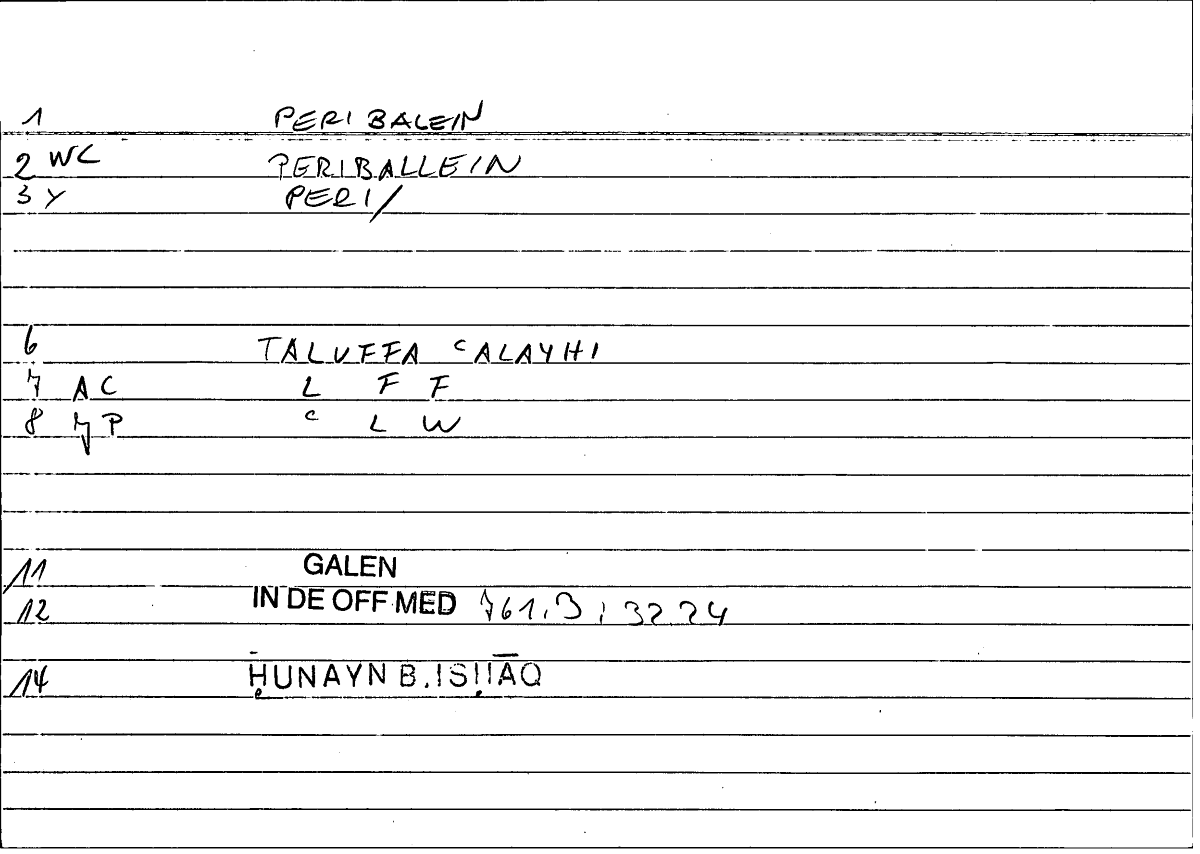 1 PERI BALEIN
2 WC PERIBALLEIN
3 Y PERI/
6 TALUFFA ᶜALAYHI
7 AC L F F
8 7P ᶜ L W
11 GALEN
12 IN DE OFF MED 761,3; 32 24
14 ḤUNAYN B. ISḤĀQ